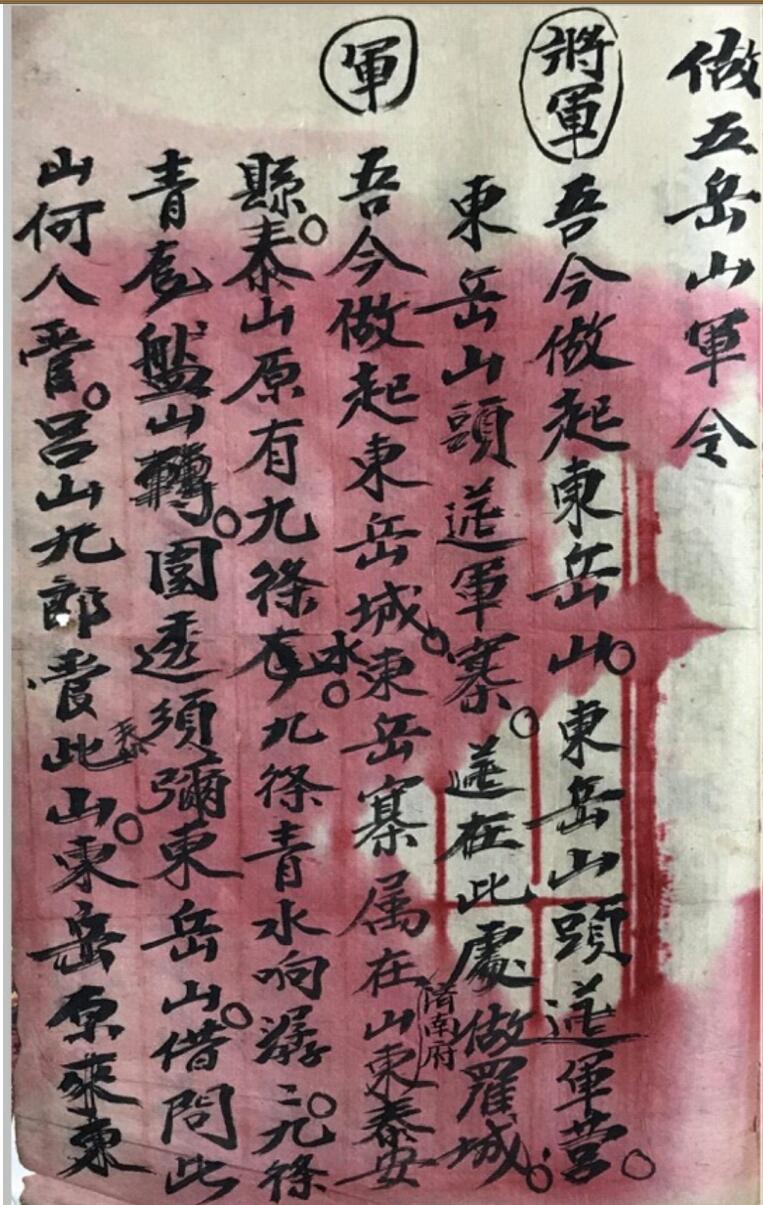 做五岳山軍令
將軍 吾今做起東岳山。東岳山頭軍营。
東岳山頭軍寨。在此處做羅城。
軍 吾今做起東岳城。東岳寨属在山東濟南府泰安
縣。泰山原有九條水。九條青水响潺二。九條
青竜盤山轉。围透須彌東岳山。借問此
山何人管。吕山九郎管此泰山。東岳原來東